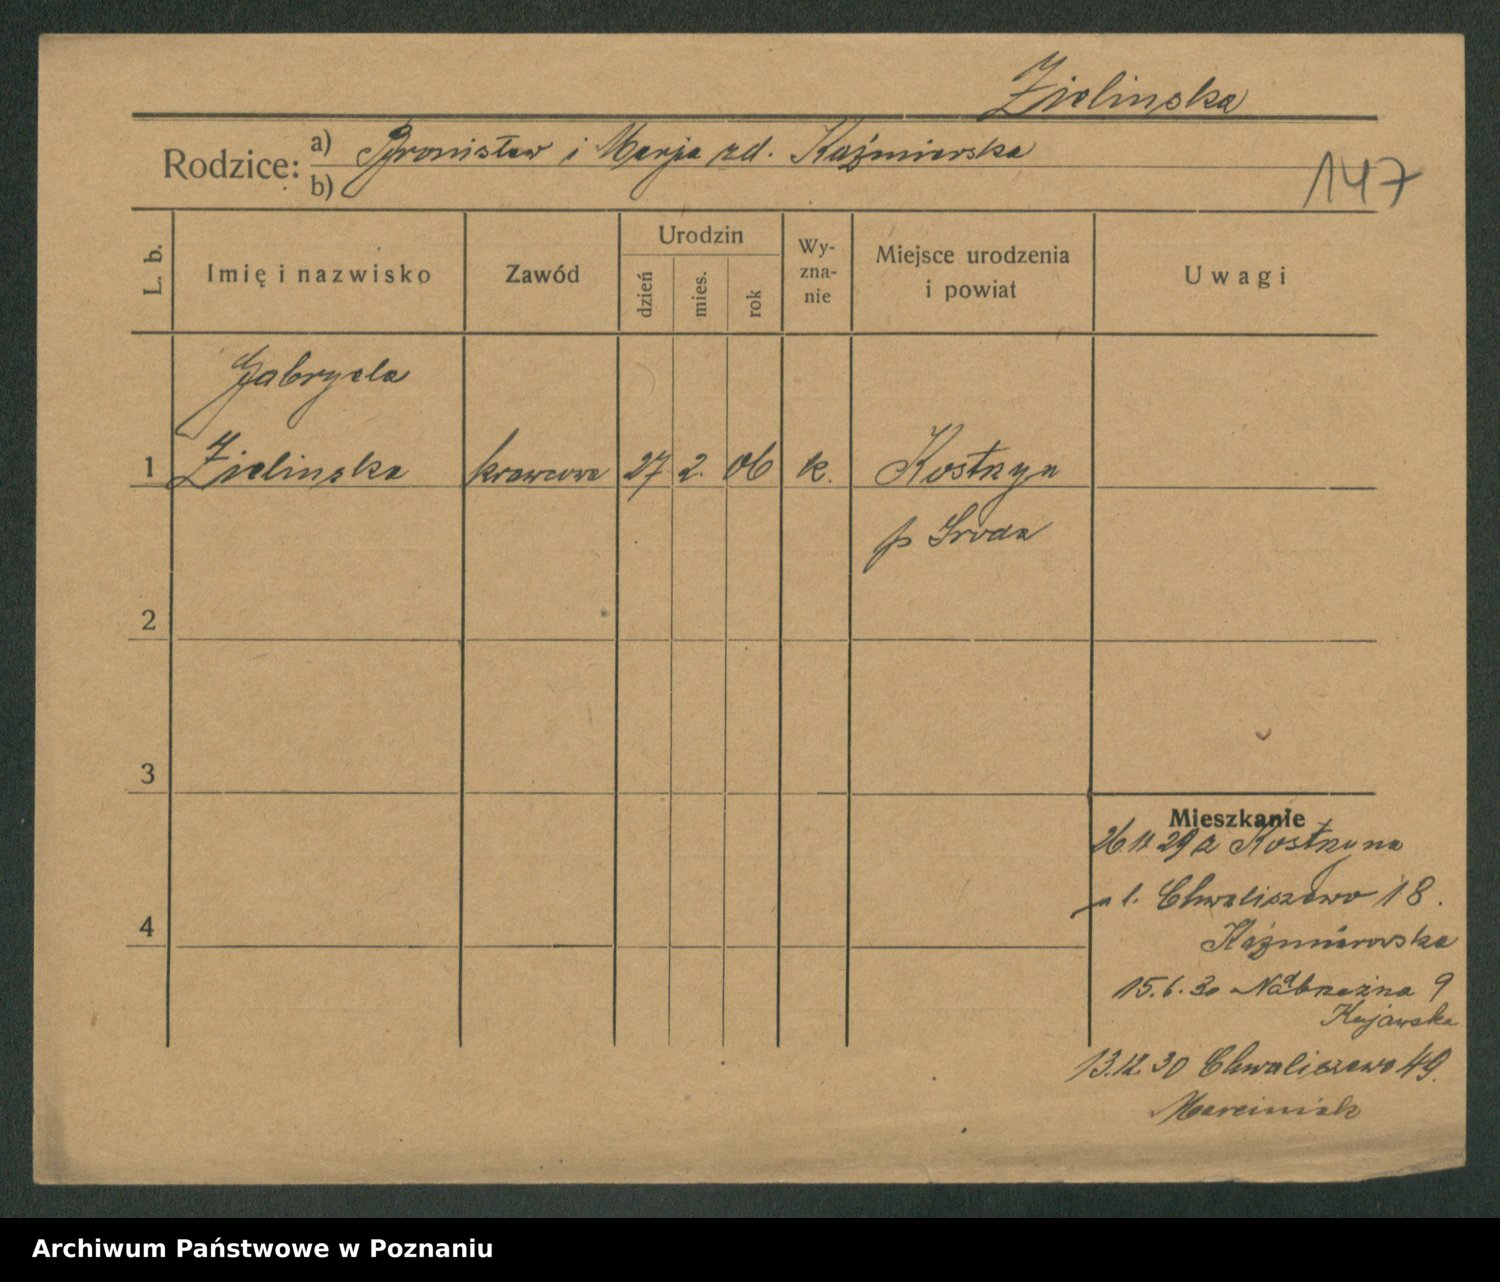 Zielinska
Rodzice: a) Bronisław i Marja zd. Kaźmierska
b)
147
L. b.
Imię i nazwisko
Zawód
Urodzin
dzień
mies.
rok
Wy-
zna-
nie
Miejsce urodzenia
i powiat
Uwagi
Gabryela
1 Zielinska krawcowa 27 2. 06 k. Kostrzyn
p Sroda
2
3
4
Mieszkanie
26.11 29 z Kostrzyna
ul. Chwaliszewo 18.
Kaźmierowska
15.6.30 Nadbrzeżna 9
Kujawska
13.12.30 Chwaliszewo 49.
Marciniak
Archiwum Państwowe w Poznaniu